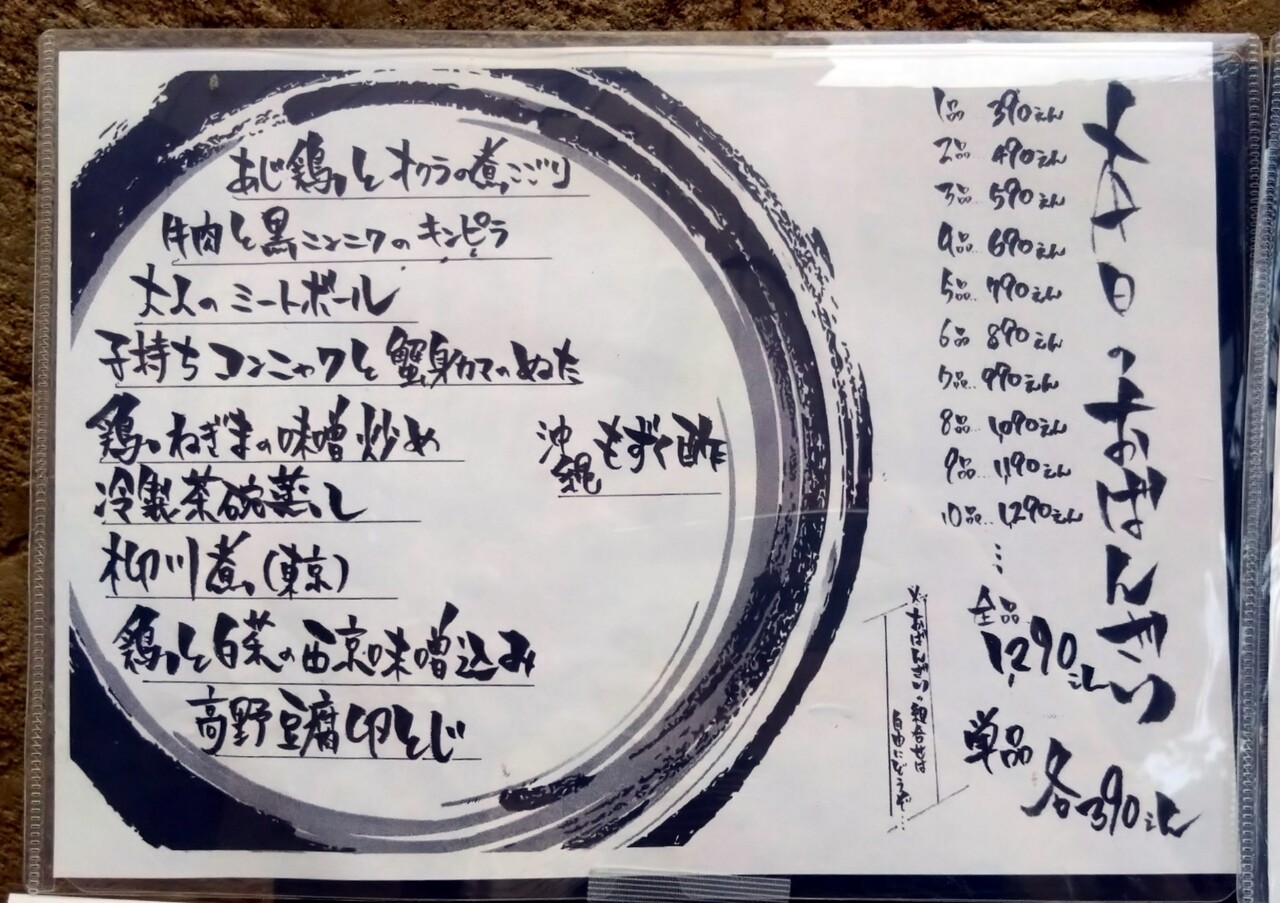 本日のおばんざい
1品 390えん
2品 490えん
3品 590えん
4品 690えん
5品 790えん
6品 890えん
7品 990えん
8品 1,090えん
9品 1,190えん
10品 1,290えん
全品 1,290えん
単品 各390えん
※おばんざいの組合せは
自由にどうぞ…
あじ鶏とオクラの煮こごり
牛肉と黒ニンニクのキンピラ
大人のミートボール
子持ちコンニャクと蟹身カマのぬた
鶏ねぎまの味噌炒め
冷製茶碗蒸し
柳川煮(東京)
鶏と白菜の西京味噌込み
高野豆腐卵とじ
沖縄もずく酢